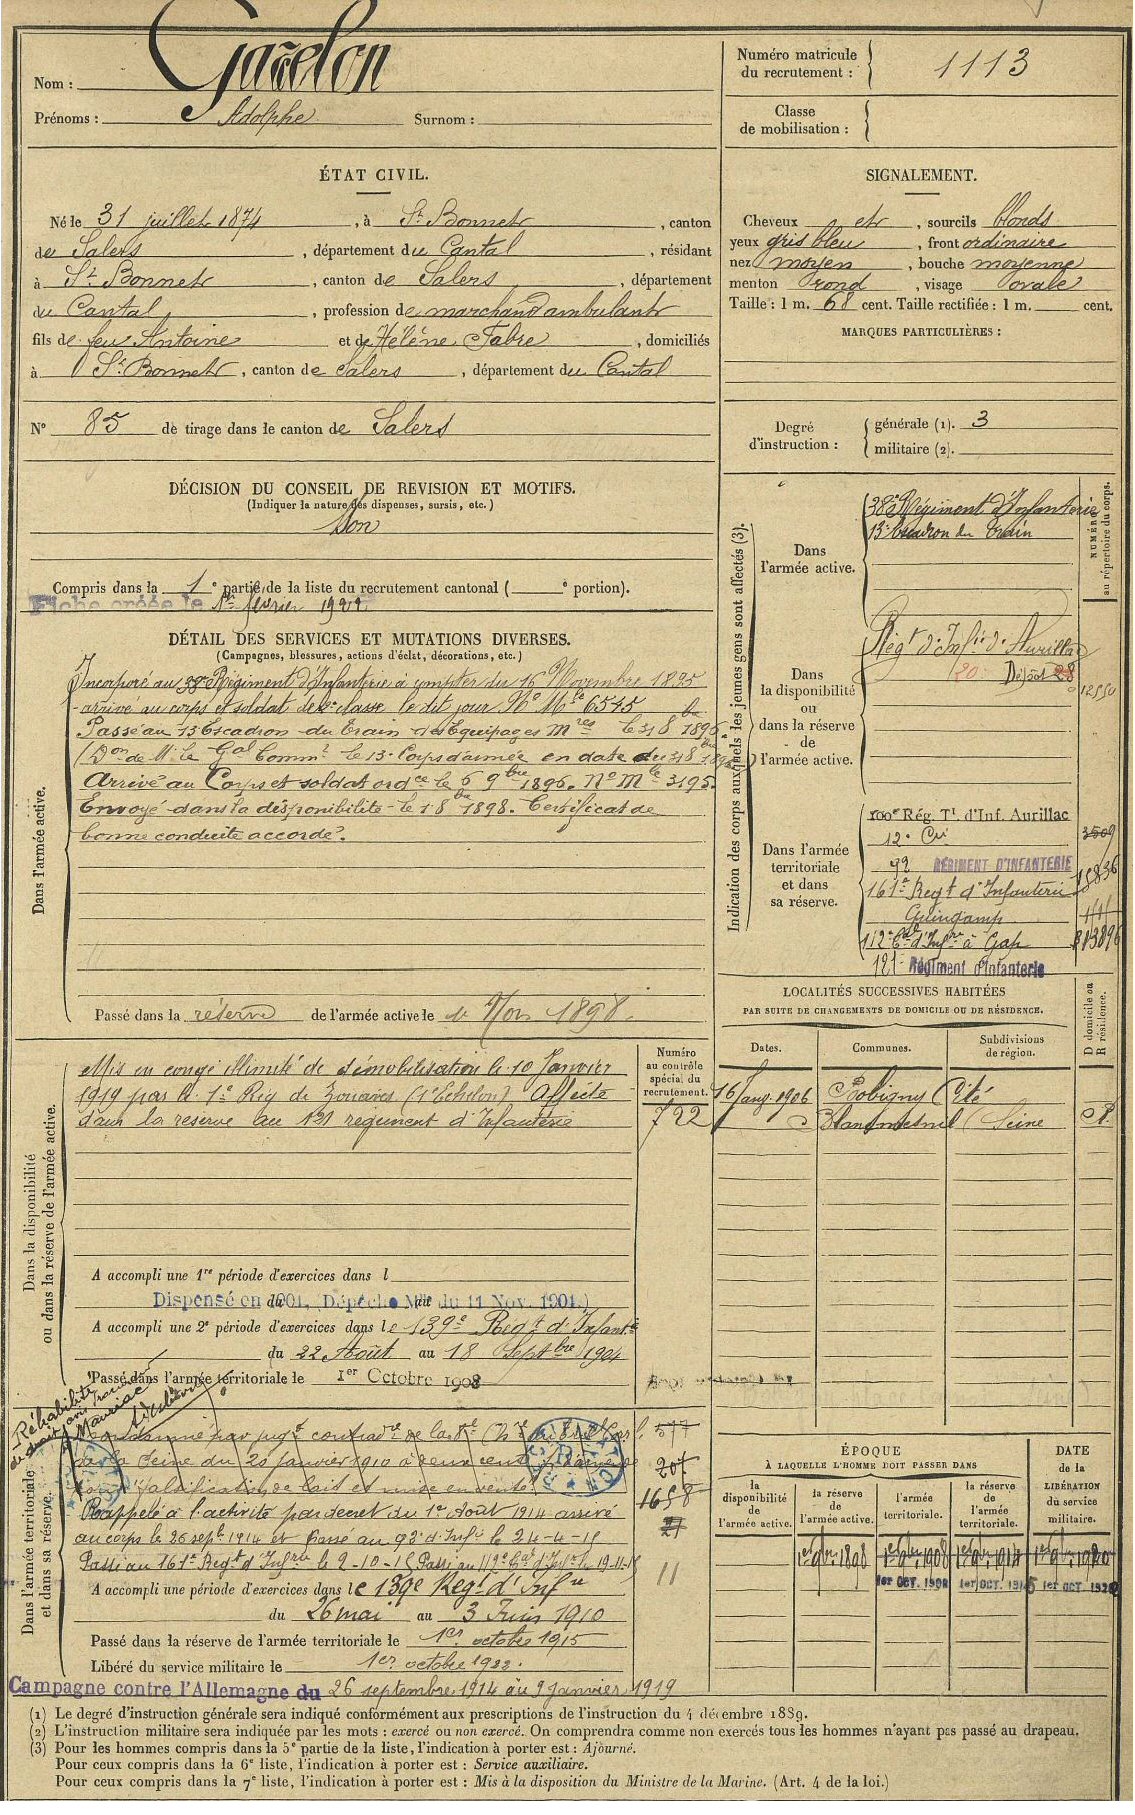 Nom : Gacelon
Prénoms : Adolphe Surnom :
Numéro matricule du recrutement : 1113
Classe de mobilisation :
ÉTAT CIVIL.
Né le 31 juillet 1874, à St Bonnet, canton
de Salers, département du Cantal, résidant
à St Bonnet, canton de Salers, département
du Cantal, profession de marchand ambulant
fils de feu Antoine et de Hélène Fabre, domiciliés
à St Bonnet, canton de Salers, département du Cantal
N° 85 de tirage dans le canton de Salers
SIGNALEMENT.
Cheveux et, sourcils blonds
yeux gris bleu, front ordinaire
nez moyen, bouche moyenne
menton rond, visage ovale
Taille : 1 m. 68 cent. Taille rectifiée : 1 m. cent.
MARQUES PARTICULIÈRES :
Degré d'instruction : générale (1). 3
militaire (2).
DÉCISION DU CONSEIL DE REVISION ET MOTIFS.
(Indiquer la nature des dispenses, sursis, etc.)
Bon
Compris dans la 1e partie de la liste du recrutement cantonal ( e portion).
Fiche créée le 1er février 1922
DÉTAIL DES SERVICES ET MUTATIONS DIVERSES.
(Campagnes, blessures, actions d'éclat, décorations, etc.)
Dans l'armée active.
Incorporé au 38e Régiment d'Infanterie à compter du 16 Novembre 1895
arrivé au corps et soldat de 2e classe le dit jour No Mle 6515
Passé au 13 Escadron du Train des Equipages Mres le 31 8bre 1896.
(Don de M. le Gal Commt le 13e Corps d'armée en date du 31 8bre 1896)
Arrivé au Corps et soldat ordre le 6 9bre 1896. No Mle 3195.
Envoyé dans la disponibilité le 18 bre 1898. Certificat de
bonne conduite accordé.
Passé dans la réserve de l'armée active le 1er Nov 1898.
Indication des corps auxquels les jeunes gens sont affectés (3).
NUMÉRO au répertoire du corps.
Dans l'armée active.
38e Régiment d'Infanterie
13e Escadron du Train
Dans la disponibilité ou dans la réserve de l'armée active.
Régt d'Infie d'Aurillac
120 Dépôt 28
12550
Dans l'armée territoriale et dans sa réserve.
100e Rég. Tl. d'Inf. Aurillac 3509
12e Cie
92 RÉGIMENT D'INFANTERIE 15836
161e Regt d'Infanterie
Guingamp
112e d'Infre à Gap
121e Régiment d'Infanterie
LOCALITÉS SUCCESSIVES HABITÉES
PAR SUITE DE CHANGEMENTS DE DOMICILE OU DE RÉSIDENCE.
Dates. Communes. Subdivisions de région. D domicile ou R résidence.
16 Janv. 1906 Bobigny Cité
Blancmesnil (Seine R.
Numéro au contrôle spécial du recrutement.
722
Dans la disponibilité ou dans la réserve de l'armée active.
Mis en congé illimité de démobilisation le 10 Janvier
1919 par le 1e Rég de Zouaves (1e Echelon) Affecté
dans la réserve au 121 régiment d'Infanterie
A accompli une 1re période d'exercices dans l
Dispensé en 1901. (Dépêche Mlle du 11 Nov. 1901.)
du au
A accompli une 2e période d'exercices dans le 139e Régt d'Infantie
du 22 Août au 18 Septbre 1904
Passé dans l'armée territoriale le 1er Octobre 1908
Réhabilité de droit
Mauriac
Dans l'armée territoriale et dans sa réserve.
Condamné par jugt contradre de la 8e Chre
de la Seine du 20 janvier 1910 à deux cents d'amende
pour falsification de lait et mise en vente.
Rappelé à l'activité par décret du 1er Août 1914 arrivé
au corps le 26 sept. 1914 et Passé au 92e d'Infie le 24-4-15
Passé au 161e Regt d'Infrie le 2-10-15 Passé au 112e d'Infre le 19-11-15
577
207
1658
11
A accompli une période d'exercices dans le 139e Regt d'Infie
du 26 mai au 3 Juin 1910
Passé dans la réserve de l'armée territoriale le 1er octobre 1915
Libéré du service militaire le 1er octobre 1922.
Campagne contre l'Allemagne du 26 septembre 1914 au 9 janvier 1919
ÉPOQUE À LAQUELLE L'HOMME DOIT PASSER DANS
DATE de la LIBÉRATION du service militaire.
la disponibilité de l'armée active.
la réserve de l'armée active.
l'armée territoriale.
la réserve de l'armée territoriale.
1er 9bre 1898 1er 9bre 1908 1er 9bre 1914 1er 9bre 1920
1er OCT. 1908 1er OCT. 1915 1er OCT. 1922
(1) Le degré d'instruction générale sera indiqué conformément aux prescriptions de l'instruction du 4 décembre 1889.
(2) L'instruction militaire sera indiquée par les mots : exercé ou non exercé. On comprendra comme non exercés tous les hommes n'ayant pas passé au drapeau.
(3) Pour les hommes compris dans la 5e partie de la liste, l'indication à porter est : Ajourné.
Pour ceux compris dans la 6e liste, l'indication à porter est : Service auxiliaire.
Pour ceux compris dans la 7e liste, l'indication à porter est : Mis à la disposition du Ministre de la Marine. (Art. 4 de la loi.)